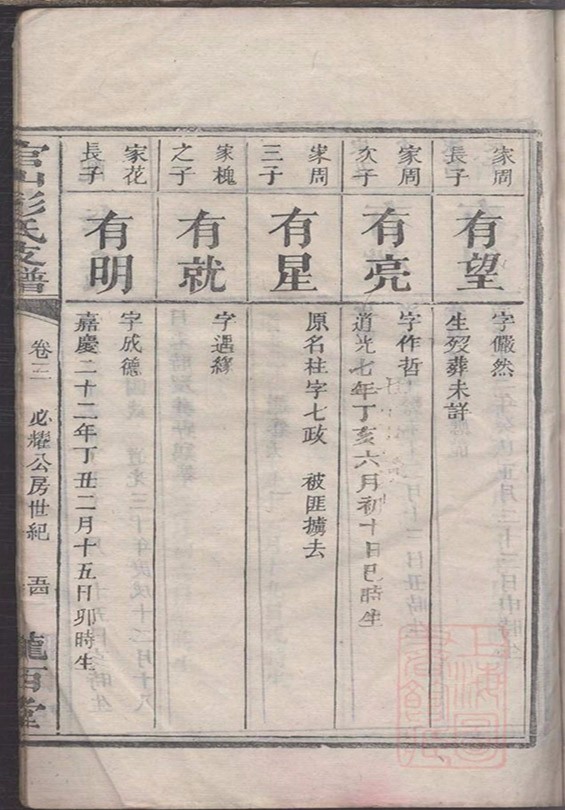 家周
長子
有望
字儼然
生歿葬未詳
家周
次子
有亮
字作哲
道光七年丁亥六月初十日巳時生
家周
三子
有星
原名柱字七政 被匪擄去
家槐
之子
有就
字遇緣
家花
長子
有明
字成德
嘉慶二十二年丁丑二月十五日卯時生
彭氏支譜
卷三 必耀公房世紀
堂